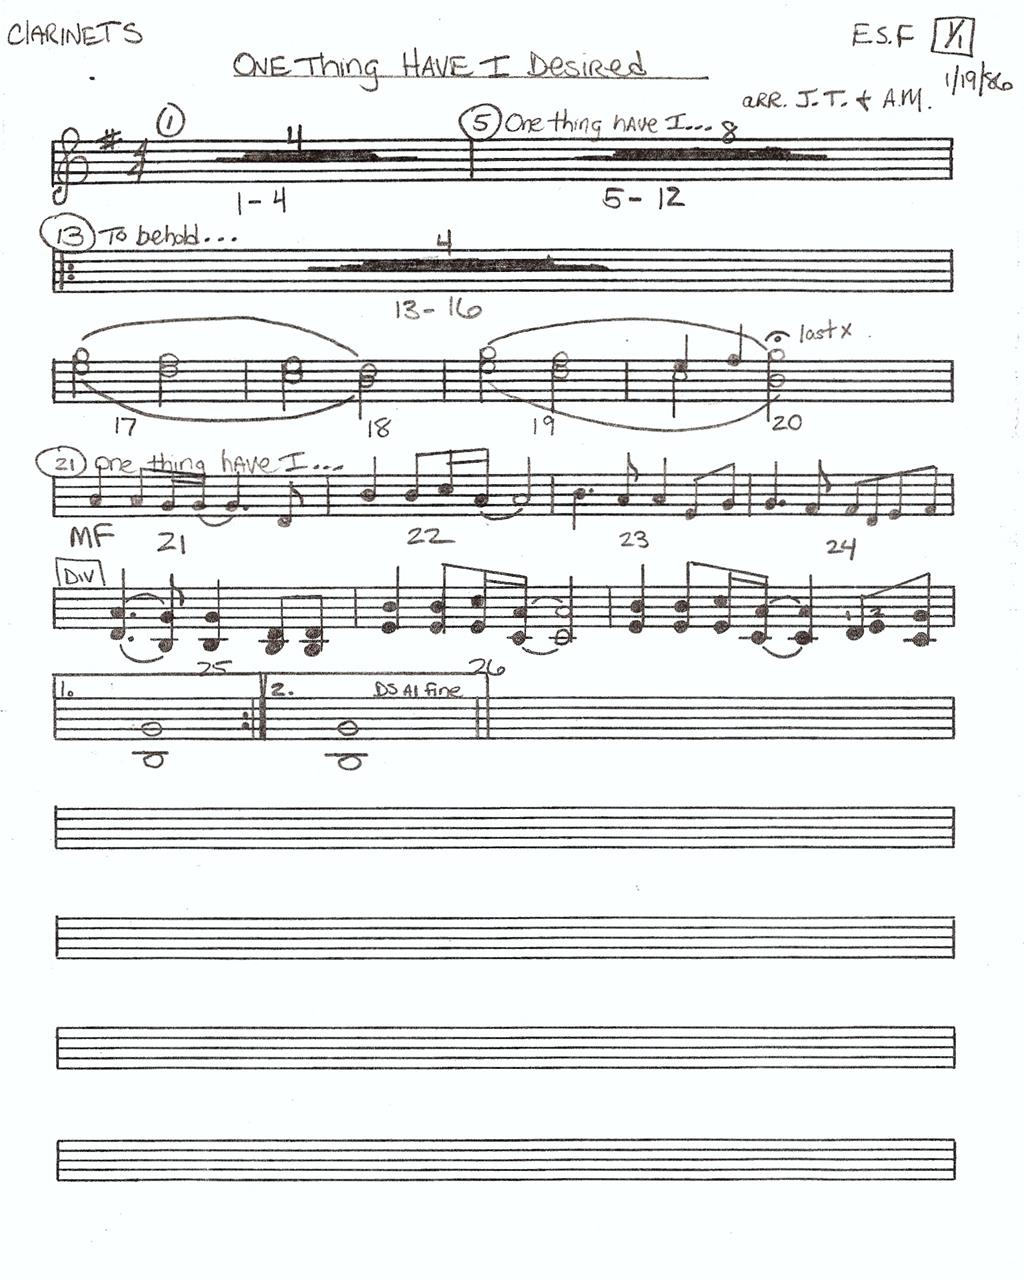 CLARINETS
E.S.F 1/1
ONE Thing HAVE I Desired
1/19/86
arr. J.T. + A.M.
1 4 5 One thing have I... 8
4
4
1-4 5-12
13 To behold...
4
13-16
last x
17 18 19 20
21 one thing have I...
MF 21 22 23 24
Div
1 2
25 26
1. 2. DS Al Fine